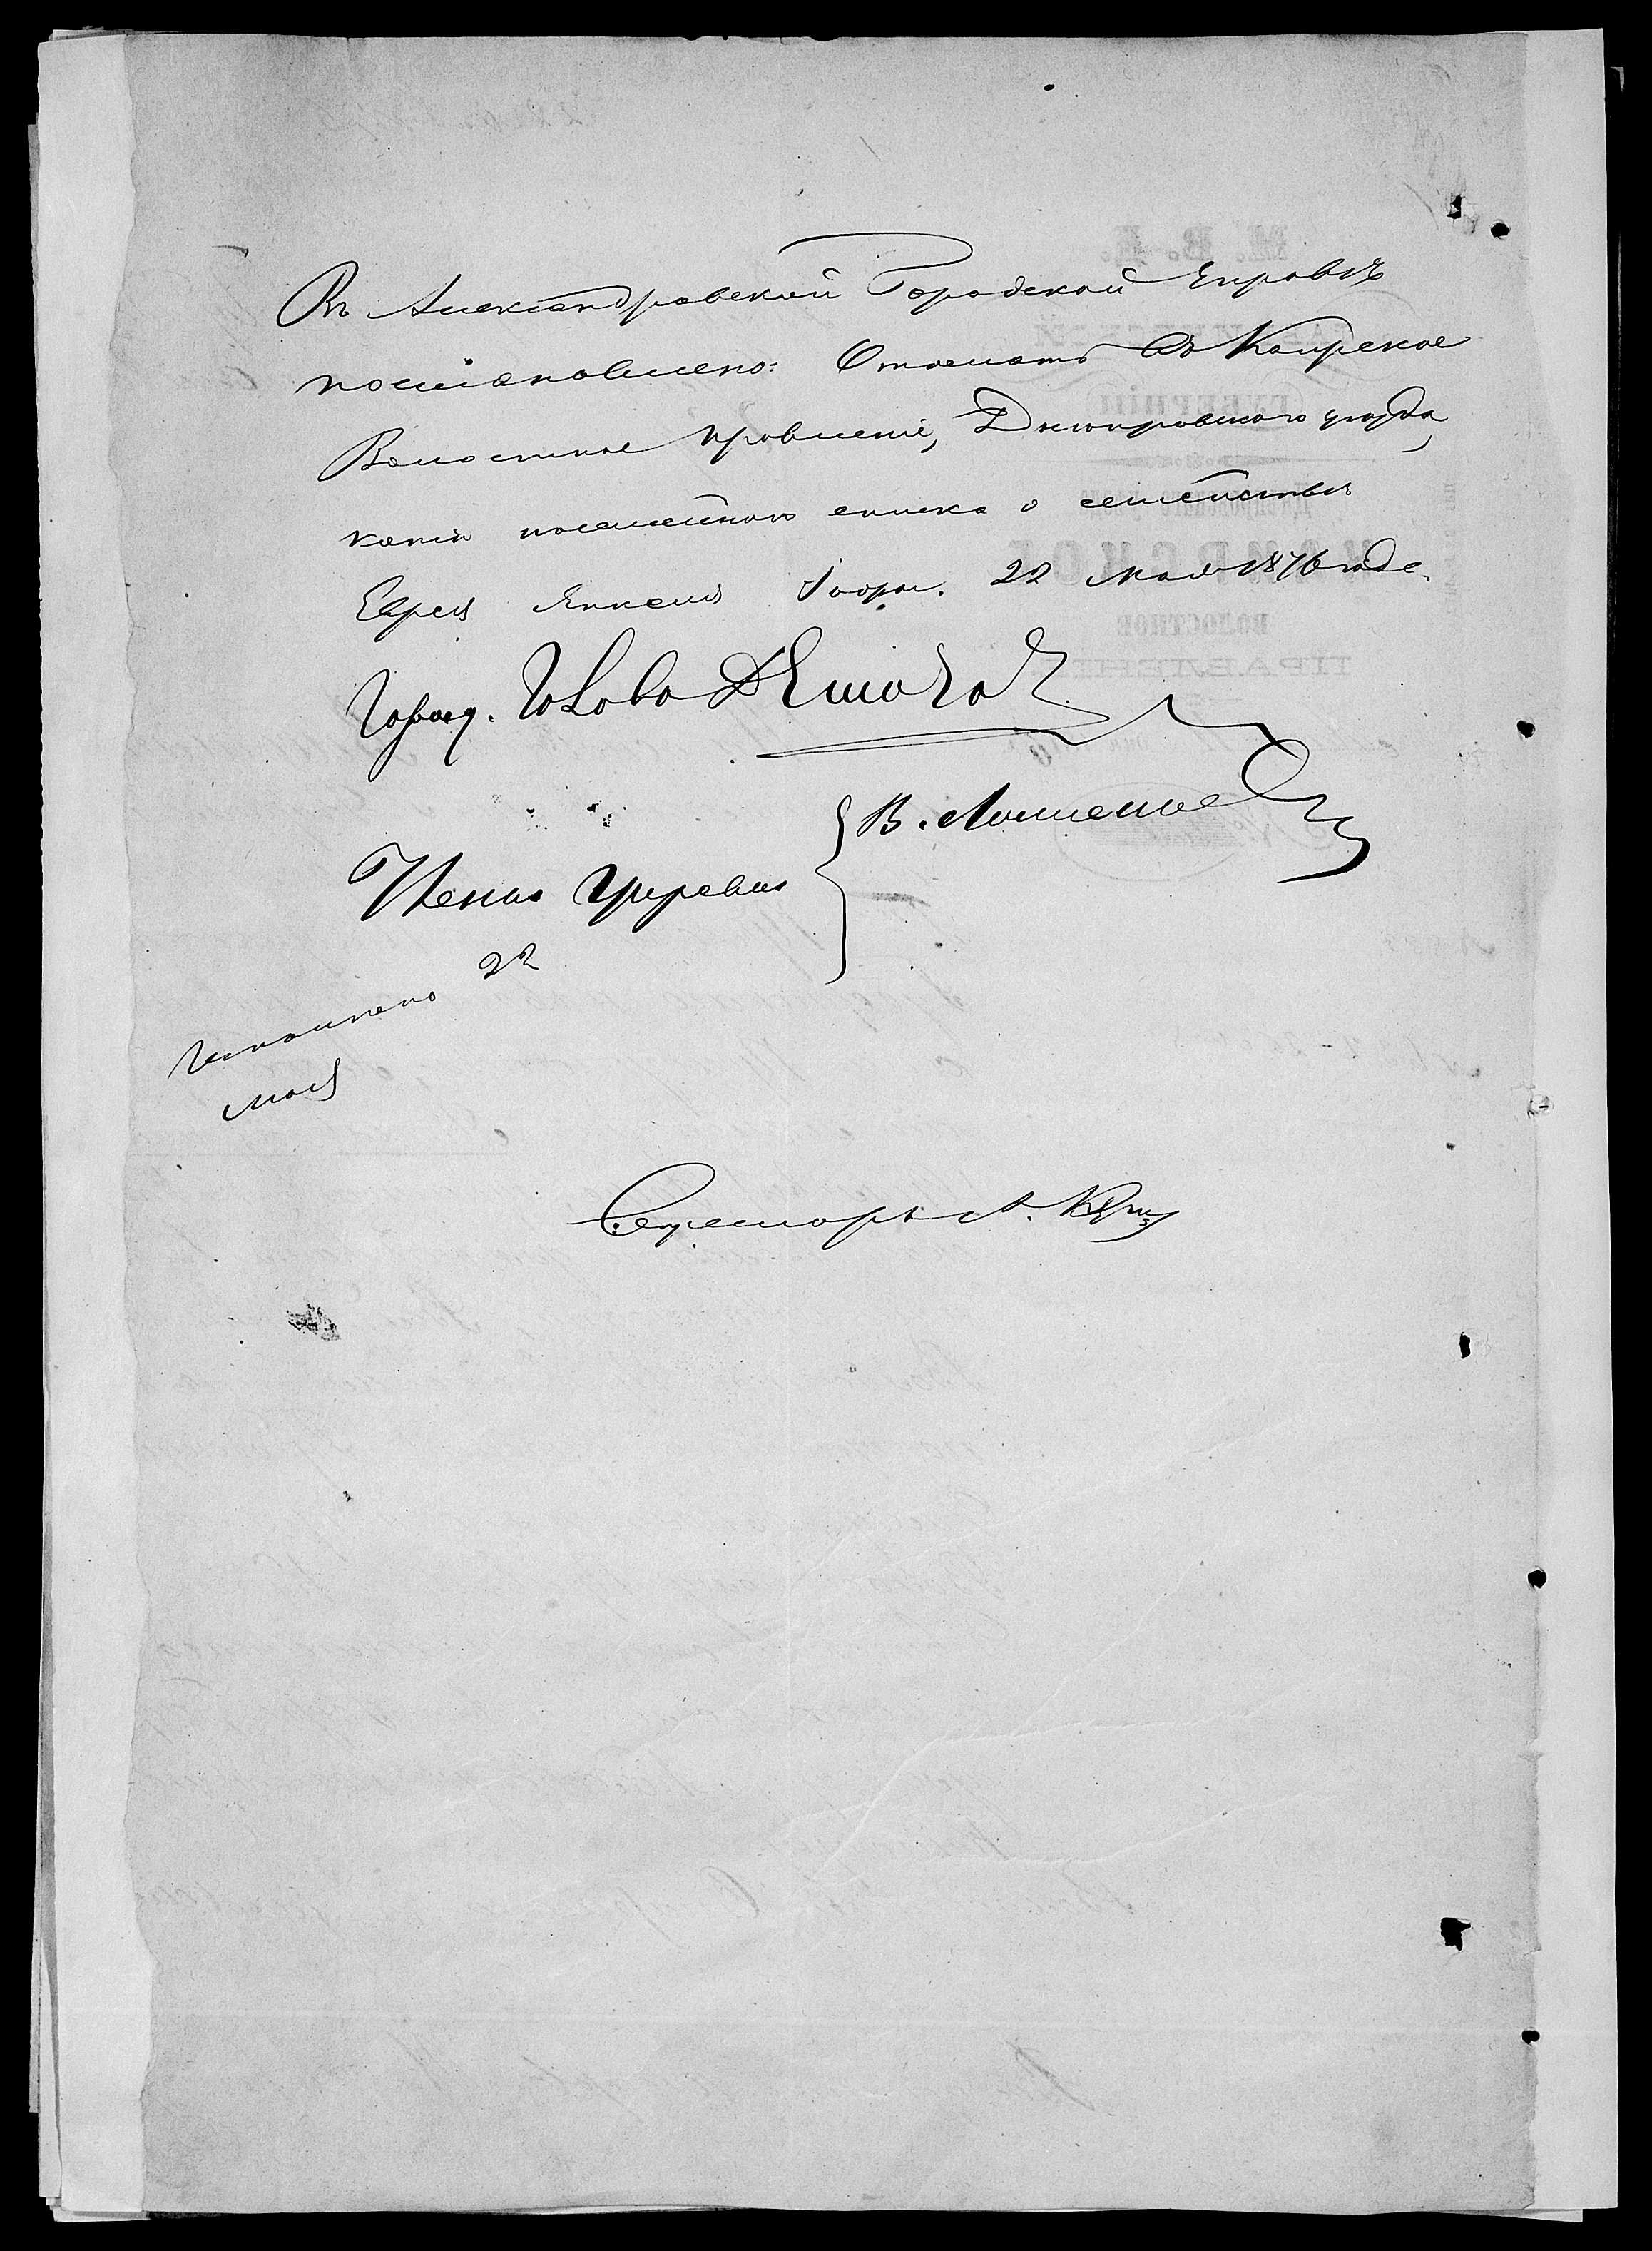 Въ Александровской Городской Управѣ
постановлено: Отослать въ Каирское
Волостное правленіе, Днѣпровского уѣзда,
копію посемейного списка о семействѣ
Еврея Янкеля 22 мая 1876 года.
Город. Голова
Члены Управы { В.
Исполнено 22
мая
Секретарь А.